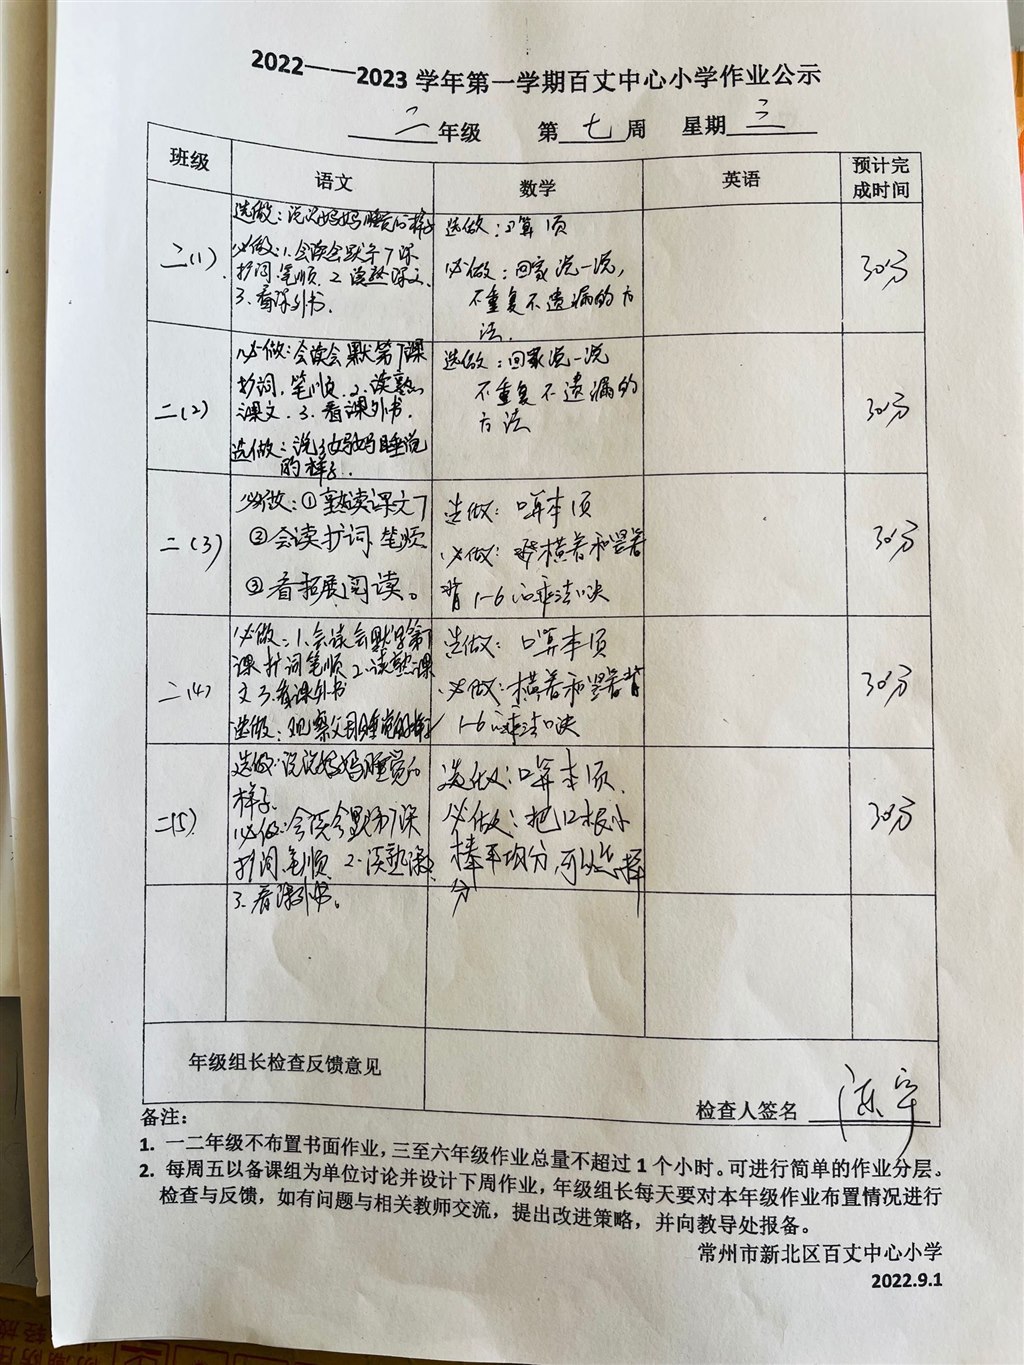 2022——2023 学年第一学期百丈中心小学作业公示
二 年级 第 七 周 星期 三
班级 语文 数学 英语 预计完成时间
二(1)
选做：说说妈妈睡觉的样子
必做：1.会读会默第7课
扩词.笔顺. 2.读熟课文.
3.看课外书.
选做：口算1页
必做：回家说一说，
不重复不遗漏的方
法.
30分
二(2)
必做：会读会默第7课
扩词.笔顺 2.读熟
课文.3.看课外书.
选做：说说妈妈睡觉
的样子.
选做：回家说一说
不重复不遗漏的
方法
30分
二(3)
必做：①熟读课文7
②会读扩词 笔顺
③看拓展阅读。
选做：口算本1页
必做：横着和竖着
背 1-6的乘法口诀
30分
二(4)
必做：1.会读会默写第7
课扩词笔顺 2.读熟课
文 3.看课外书
选做：观察父母睡觉的样子
选做：口算本1页
必做：横着和竖着背
1-6的乘法口诀
30分
二(5)
选做：说说妈妈睡觉的
样子.
必做：会读会默第7课
扩词.笔顺 2.读熟课文
3.看课外书。
选做：口算本1页.
必做：把12根小
棒平均分，可以怎样
分
30分
年级组长检查反馈意见
检查人签名
备注：
1. 一二年级不布置书面作业，三至六年级作业总量不超过 1 个小时。可进行简单的作业分层。
2. 每周五以备课组为单位讨论并设计下周作业，年级组长每天要对本年级作业布置情况进行
检查与反馈，如有问题与相关教师交流，提出改进策略，并向教导处报备。
常州市新北区百丈中心小学
2022.9.1